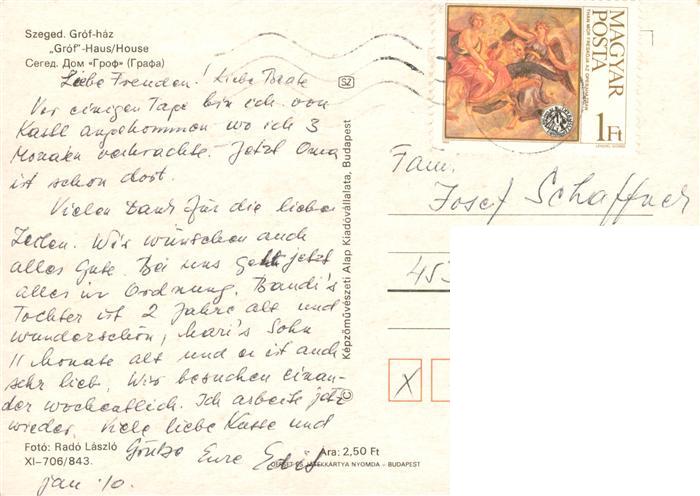 Szeged. Gróf-ház
„Gróf"-Haus/House
Сегед. Дом «Гроф» (Графа)
Liebe Freunden! Liebe Beate
Vor einigen Tage bin ich von
Kastl angekommen wo ich 3
Monaten verbrachte. Jetzt Oma
ist schon dort.
Vielen Dank für die liebe
Zeilen. Wir wünschen auch
alles Gute. Bei uns geht jetzt
alles in Ordnung. Bandi's
Tochter ist 2 Jahre alt und
wunderschön, Mari's Sohn
11 Monate alt und er ist auch
sehr lieb. Wir besuchen einan-
der wochentlich. Ich arbeite jetz
wieder. Viele liebe Küsse und
Eure Edit
jan 10.
Fotó: Radó László
XI–706/843.
Ára: 2,50 Ft
JÁTÉKKÁRTYA NYOMDA – BUDAPEST
SZ
© Képzőművészeti Alap Kiadóvállalata, Budapest
MAGYAR
POSTA
1Ft
Fam.
Josef Schaffner
453
X